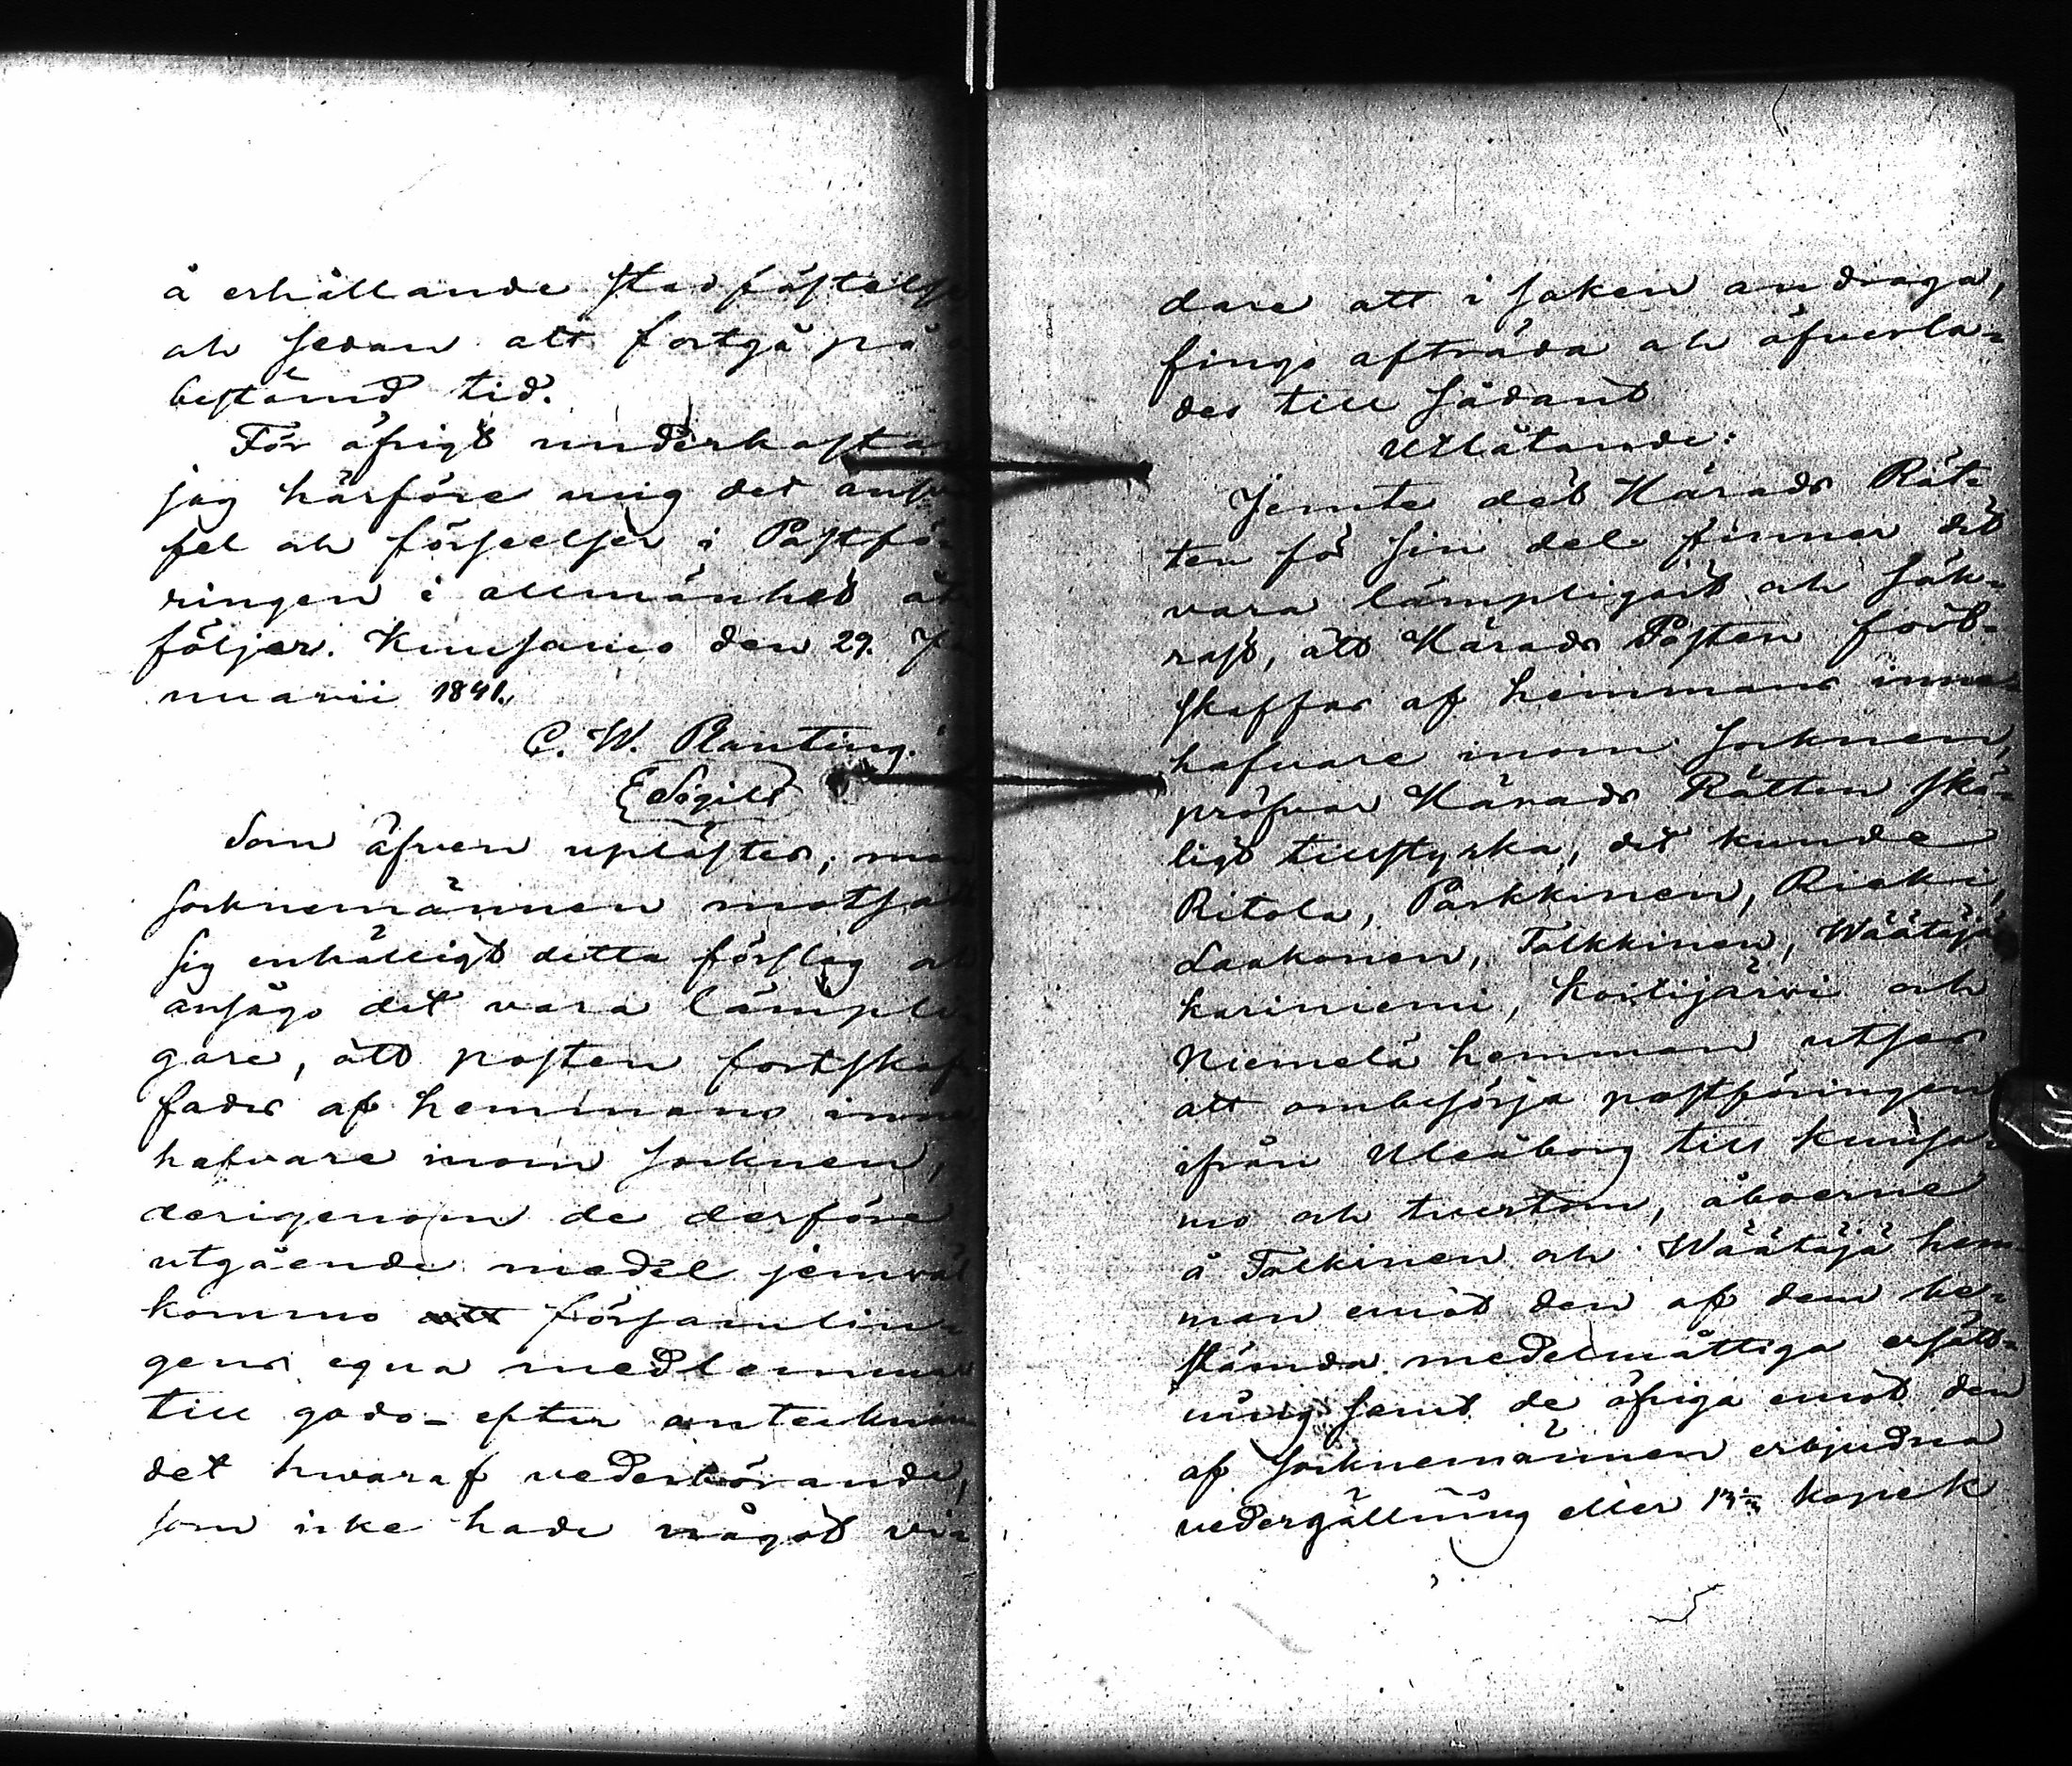 å erhållande stadfästelse
och sedan att fortgå på
bestämd tid.
För öfrigt underkastar
jag härföre mig det answ
fel och förseelser i Postfö-
ringen i allmänhet åt-
följer. Kuusamo den 29. Ja
nuarii 1841.
C. W. Planting.
Sigill
Som äfven uplästes; men
socknemännen motsatt
sig enhälligt detta förslag och
ansågo det vara lämpli-
gare, att posten fortskaf-
fades af hemmans inne-
hafvare inom socknen,
derigenom de derföre
utgående medel jemväl
kommo församlin-
gens egna medlemmar
till godo- efter antecknan
det hwaraf vederbörande,
som icke hade något vi-
dare att i saken andraga,
fingo afträda och öfverla-
des till sådant
Utlåtande:
Jemte det Härads Rät-
ten för sin del finner det
vara lämpligast och säk-
rast, att Härads Posten fort-
skaffas af hemmans inne-
hafvare inom socknen,
pröfvar Härads Rätten skä-
ligt tillstyrka, det kunde
Ritola, Parkkinen, Riekki,
Laakonen, Tolkkinen, Määtäjä
kariniemi, Koilijärvi och
Niemelä hemman utses
att ombesörja postföringen
ifrån Uleåborg till Kuusa-
mo och tvertom, åboerne
å Tolkinen och Määtäjä hem-
man emot den af dem be-
stämda medelmåttiga ersätt-
ning samt de öfriga emot den
af socknemännen erbjudna
vedergällning eller kopek